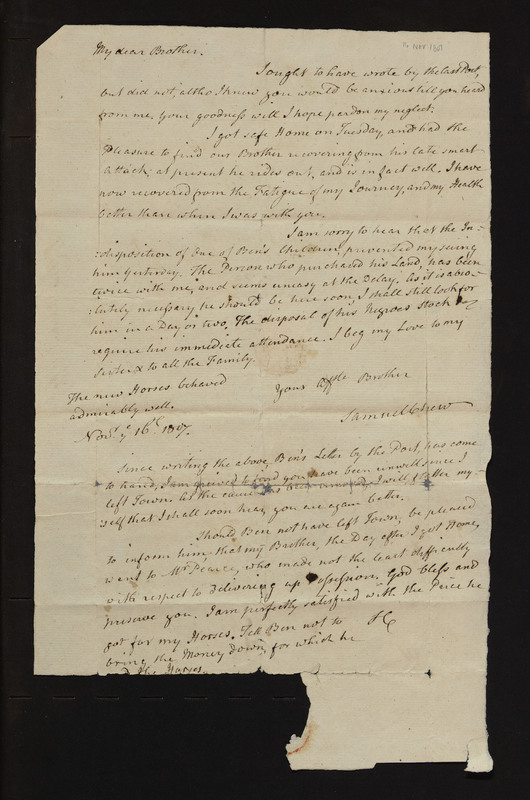 16 Nov 1807
My dear Brother.
I ought to have wrote by the last Post,
but did not, altho I knew you would be anxious till you heard
from me, your goodness will I hope pardon my neglect.
I got safe Home on Tuesday, and had the
Pleasure to find our Brother recovering from his late smart
attack; at present he rides out, and is in fact well. I have
now recovered from the Fatigue of my Journey, and my Health
better than when I was with you.
I am sorry to hear that the In-
:disposition of One of Ben's Children, prevented my seeing
him yesterday. The Person who purchased his Land, has been
twice with me, and seems uneasy at the Delay. As it is abso-
:lutely necessary he should be here soon, I shall still look for
him in a Day or two. The disposal of his Negroes Stock &
require his immediate attendance. I beg my Love to my
Sister & to all the Family.
The new Horses behaved
admirably well.
Yours Affte Brother
Samuel Chew
Novr. ye 16th 1807.
Since writing the above, Ben's Letter by the Post, has come
to hand, I am grieved to find you have been unwell since I
left Town. As the cause has been removed, I will flatter my-
:self that I shall soon hear, you are again better.
Should Ben not have left Town, be pleased
to inform him, that my Brother, the Day after I got Home,
went to Mr Pearce, who made not the least difficulty
with respect to Delivering up Possession. God bless and
preserve you. I am perfectly satisfied with the Price he
got for my Horses. Tell Ben not to SC
bring the Money down, for which he
the Horses.